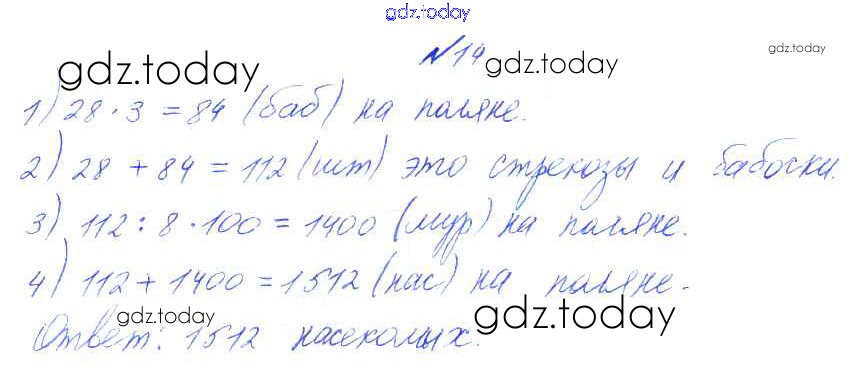 gdz.today
№14
gdz.today
gdz.today
gdz.today
1) 28 · 3 = 84 (баб) на поляне.
2) 28 + 84 = 112 (шт) это стрекозы и бабочки.
3) 112 : 8 · 100 = 1400 (мур) на поляне.
4) 112 + 1400 = 1512 (нас) на поляне.
gdz.today
gdz.today
Ответ: 1512 насекомых.